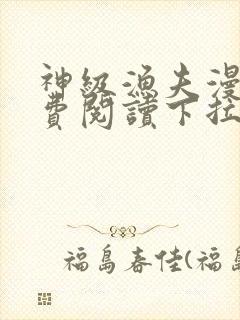 神級漁夫漫
費閱讀下拉
福島春佳(福島